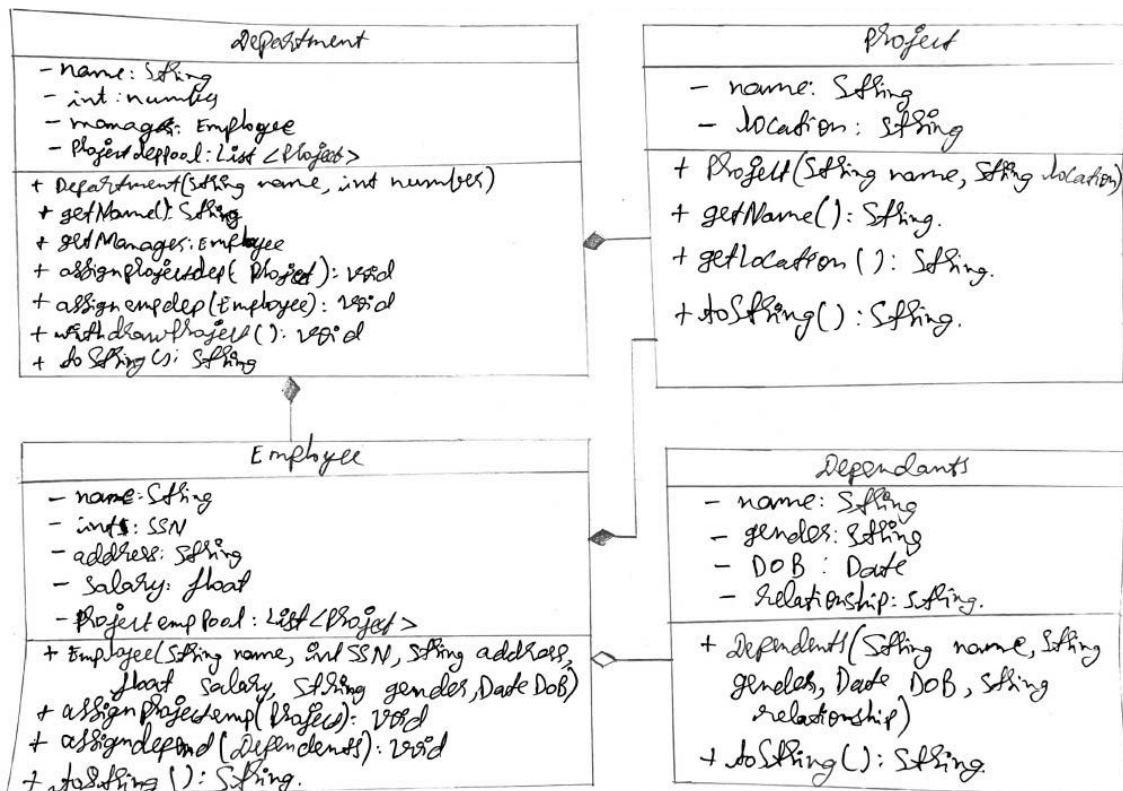 Department
- name: String
- int: number
- manager: Employee
- Projectdeppool: List <Project>
+ Department(String name, int number)
+ getName(): String
+ getManager: Employee
+ assignprojectdep( Project): void
+ assignempdep(Employee): void
+ withdrawProject(): void
+ toString(): String
Project
- name: String
- location: String
+ Project(String name, String location)
+ getName(): String.
+ getlocation(): String.
+ toString(): String.
Employee
- name: String
- int: SSN
- address: String
- salary: float
- Projectemppool: List<Project>
+ Employee(String name, int SSN, String address,
float salary, String gender, Date DOB)
+ assignProjectemp(Project): void
+ assigndepend(Dependents): void
+ toString(): String.
Dependants
- name: String
- gender: String
- DOB : Date
- relationship: String.
+ Dependents(String name, String
gender, Date DOB, String
relationship)
+ toString(): String.